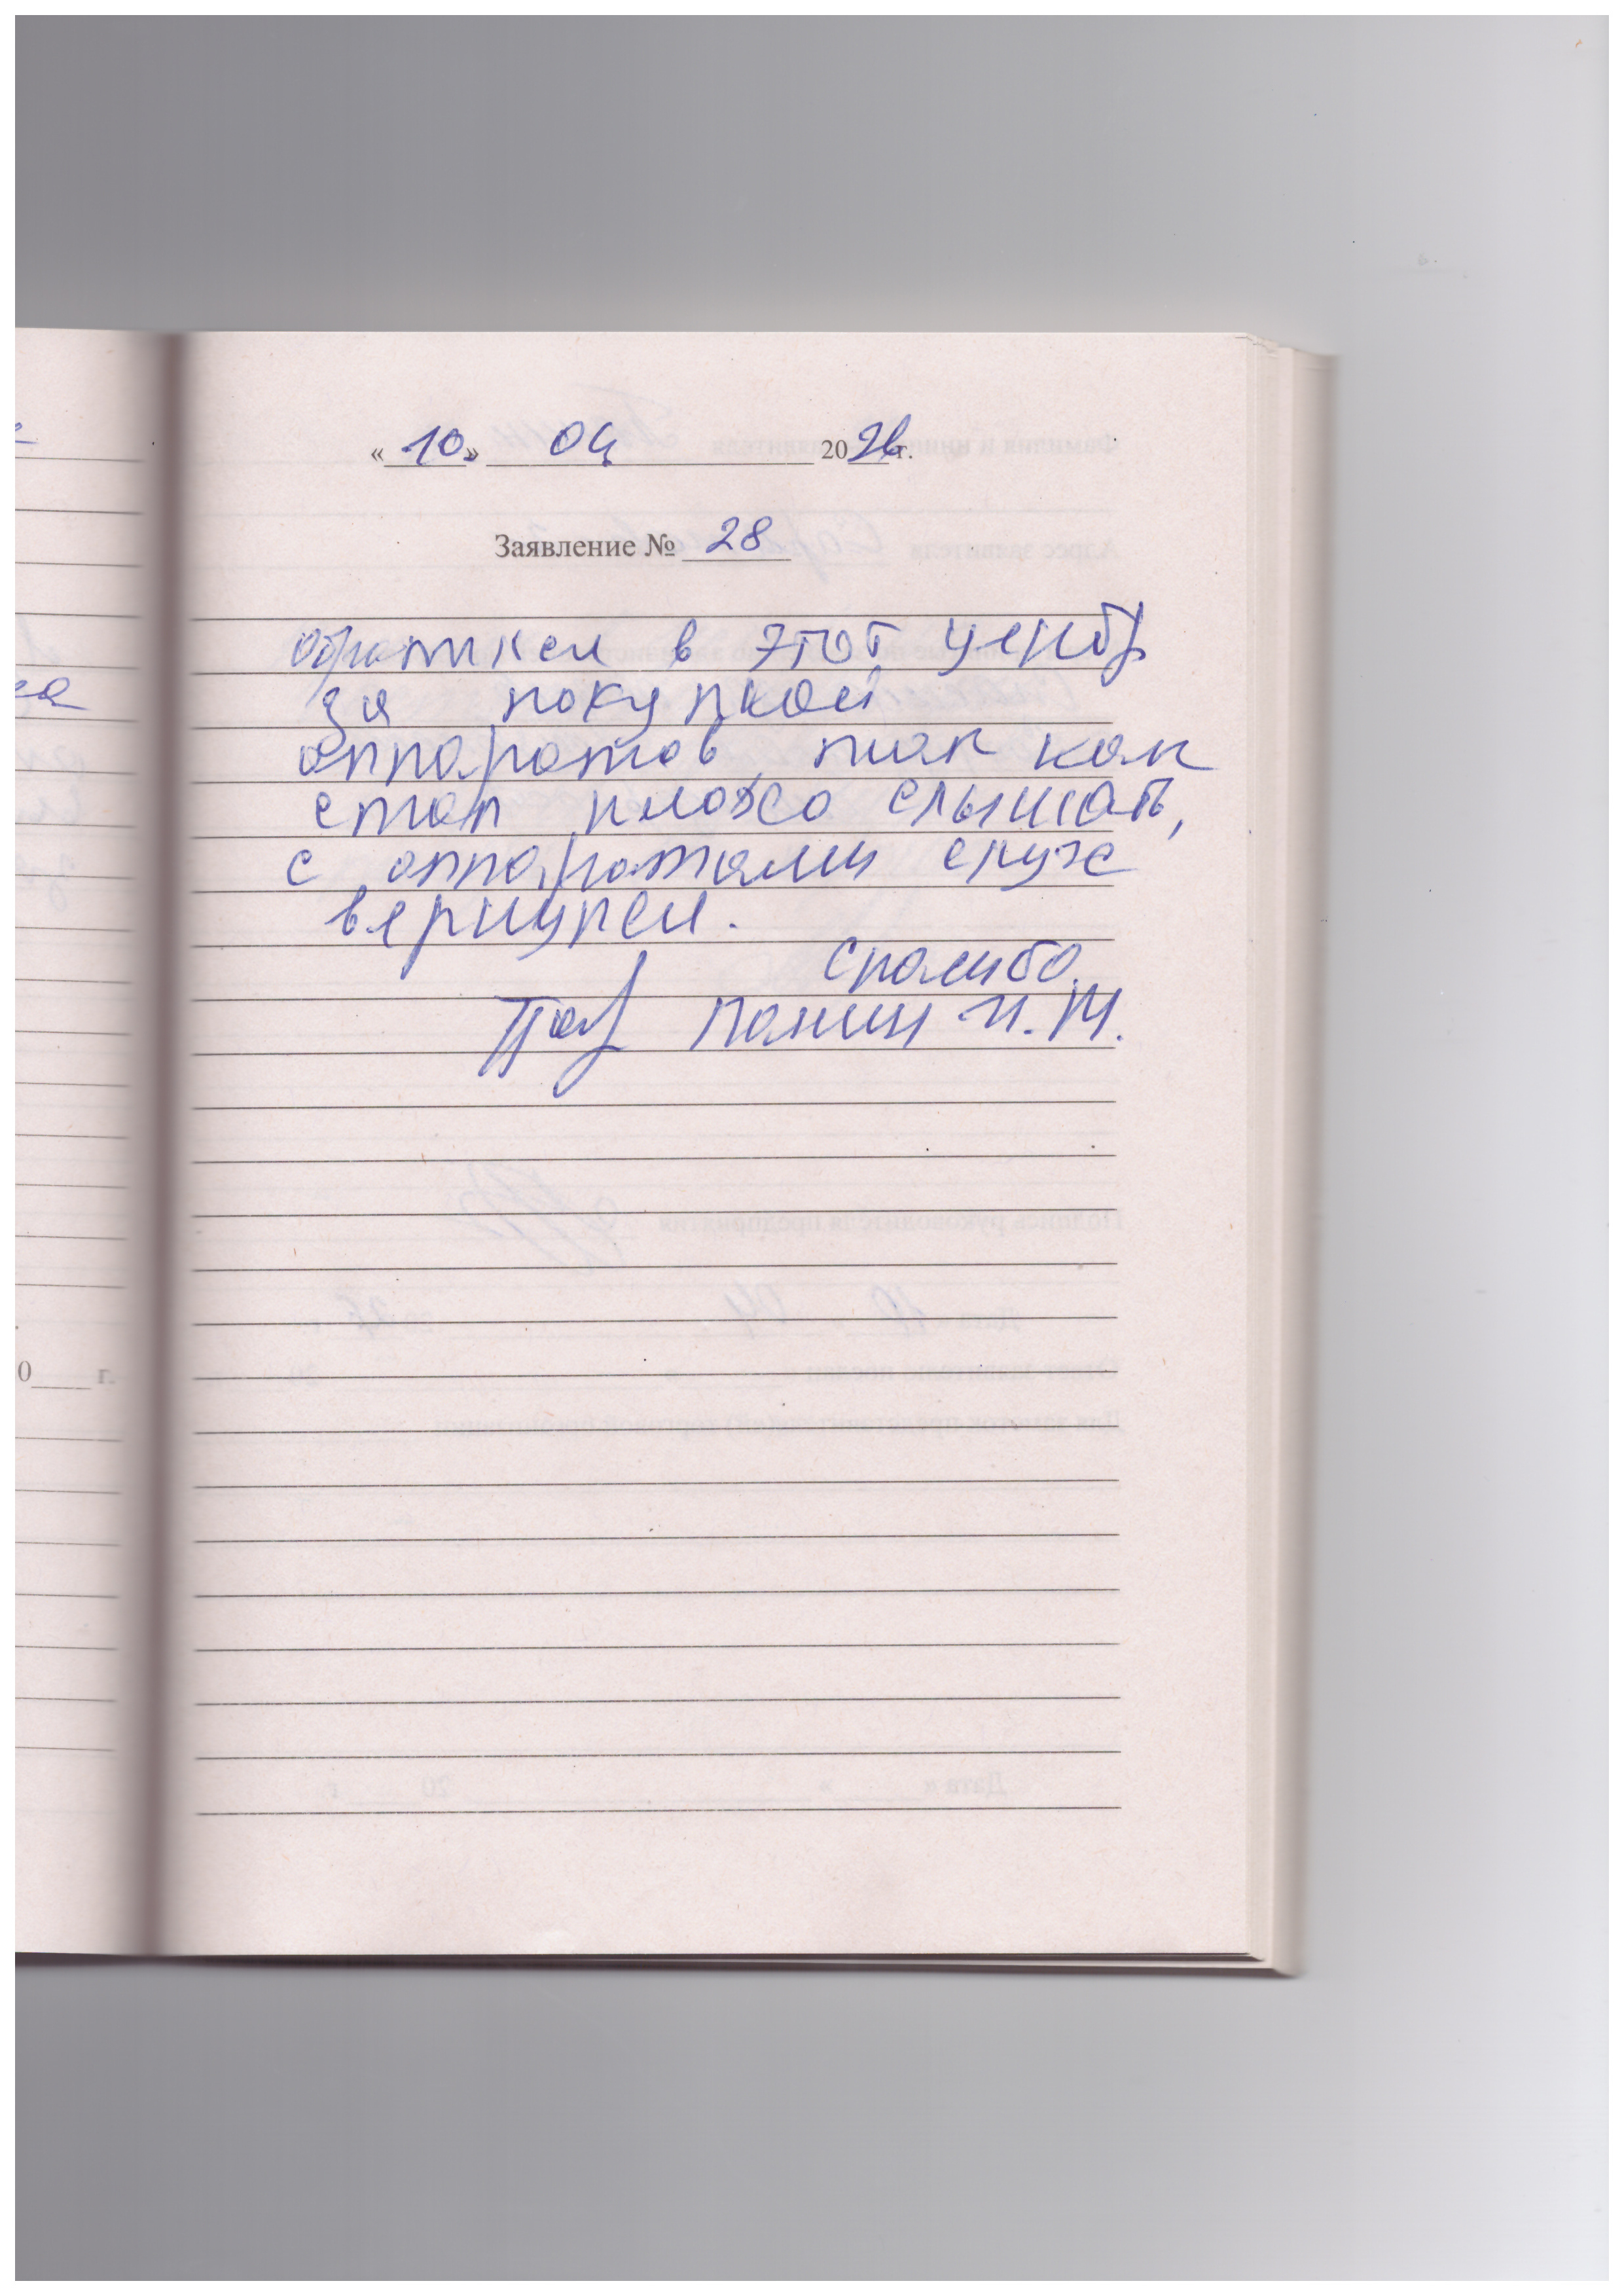 «10.» 04 2026 г.
Заявление № 28
Обратился в этот центр
за покупкой
аппаратов, так как
стал плохо слышать,
с аппаратами слух
вернулся.
Спасибо.
Панин И. М.
0 г.